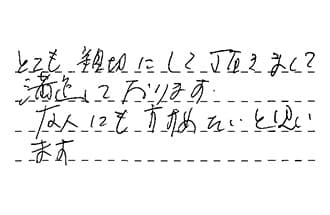 とても親切にして頂きまして
満足しております.
友人にもすすめたいと思い
ます